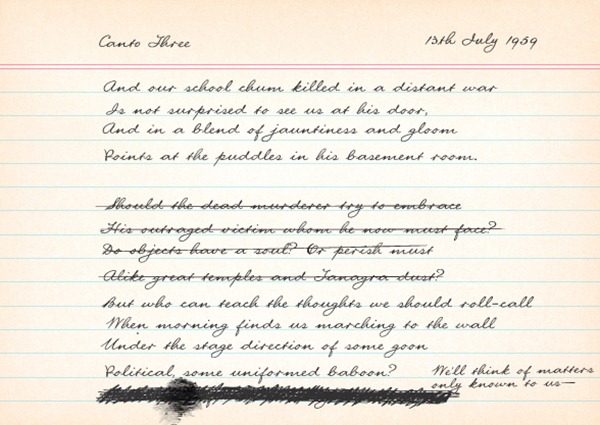 Canto Three
13th July 1959
And our school chum killed in a distant war
Is not surprised to see us at his door,
And in a blend of jauntiness and gloom
Points at the puddles in his basement room.
Should the dead murderer try to embrace
His outraged victim whom he now must face?
Do objects have a soul? Or perish must
Alike great temples and Tanagra dust?
But who can teach the thoughts we should roll-call
When morning finds us marching to the wall
Under the stage direction of some goon
Political, some uniformed baboon?
We'll think of matters
only known to us—